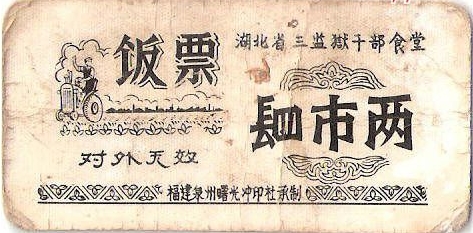 饭票
湖北省三监獄干部食堂
䦉市两
对外无效
福建泉州曙光冲印社承制